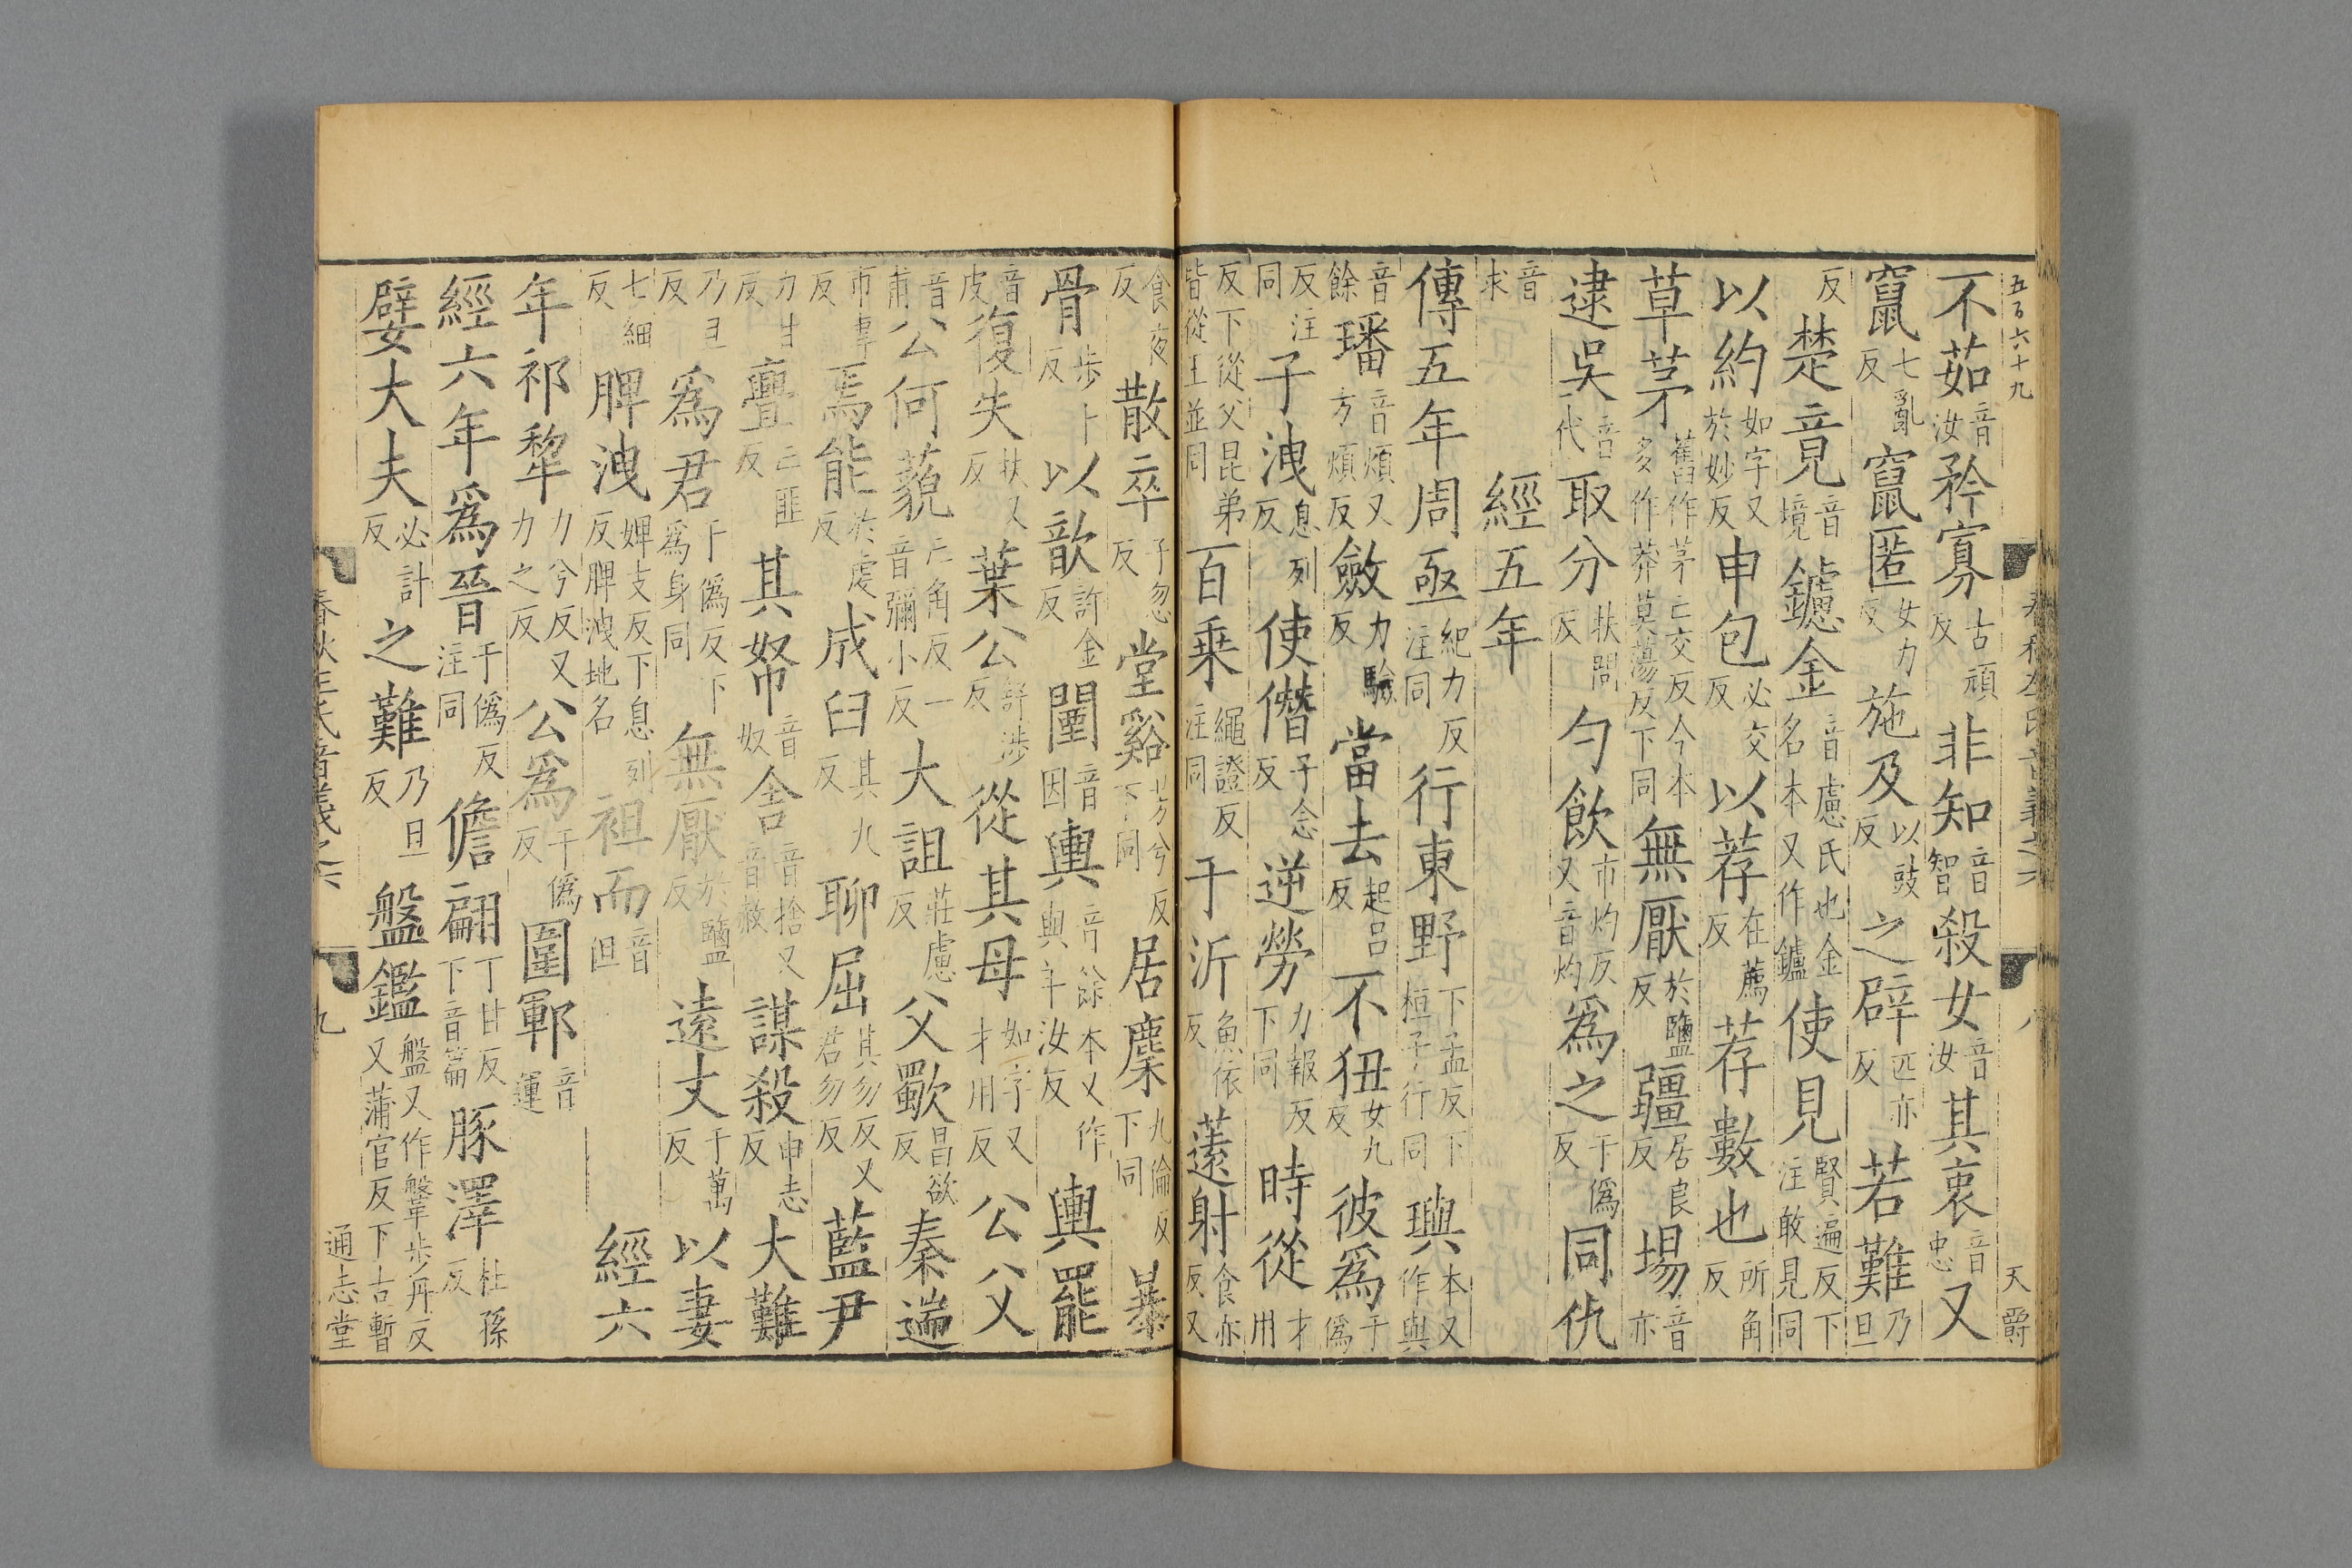 五百六十九
不茹音汝矜寡古頑反非知音智殺女音汝其衷音忠又
竄七亂反竄匿女力反施及以豉反之辟匹亦反若難乃旦
反楚竟音境鑢金音慮氏也金名本又作鑪使見賢遍反下注敢見同
以約如字又於妙反申包必交反以荐在薦反荐數也所角反
草茅舊作茅亡交反今本多作莽莫蕩反下同無厭於鹽反疆居良反場音亦
逮吳音代一取分扶問反勺飲市灼反又音灼爲之于僞反同仇
音求經五年
傳五年周亟紀力反注同行東野下孟反下桓子行同璵本又作與
音餘璠音煩又方煩反斂力驗反當去起呂反不狃女九反彼爲于僞
反注同子洩息列反使僭子念反逆勞力報反下同時從才用
反下從父昆弟皆從王並同百乘繩證反注同于沂魚依反薳射食亦反又
食夜反散卒子忽反堂谿芳兮反下同居麇九倫反下同暴
骨步卜反以歆許金反闉音因輿音餘本又作與羊汝反輿罷
音皮復失扶又反葉公舒涉反從其母如字又才用反公父
音甫公何藐亡角反一音彌小反大詛莊慮反父歜昌欲反秦遄
市專反焉能於虔反成臼其九反聊屈其勿反又君勿反藍尹
力甘反亹亡匪反其帑音奴舍音捨又音赦謀殺申志反大難
乃旦反爲君于僞反下爲身同無厭於鹽反遠丈于萬反以妻
七細反脾洩婢支反下息列反脾洩地名袒而音但經六
年祁犂力兮反又力之反公爲于僞反圍鄆音運
經六年爲晉于僞反注同儋翩丁甘反下音篇豚澤杜孫反
嬖大夫必計反之難乃旦反盤鑑盤又作鞶步丹反又蒲官反下古暫
春秋左氏音義之六
九
通志堂